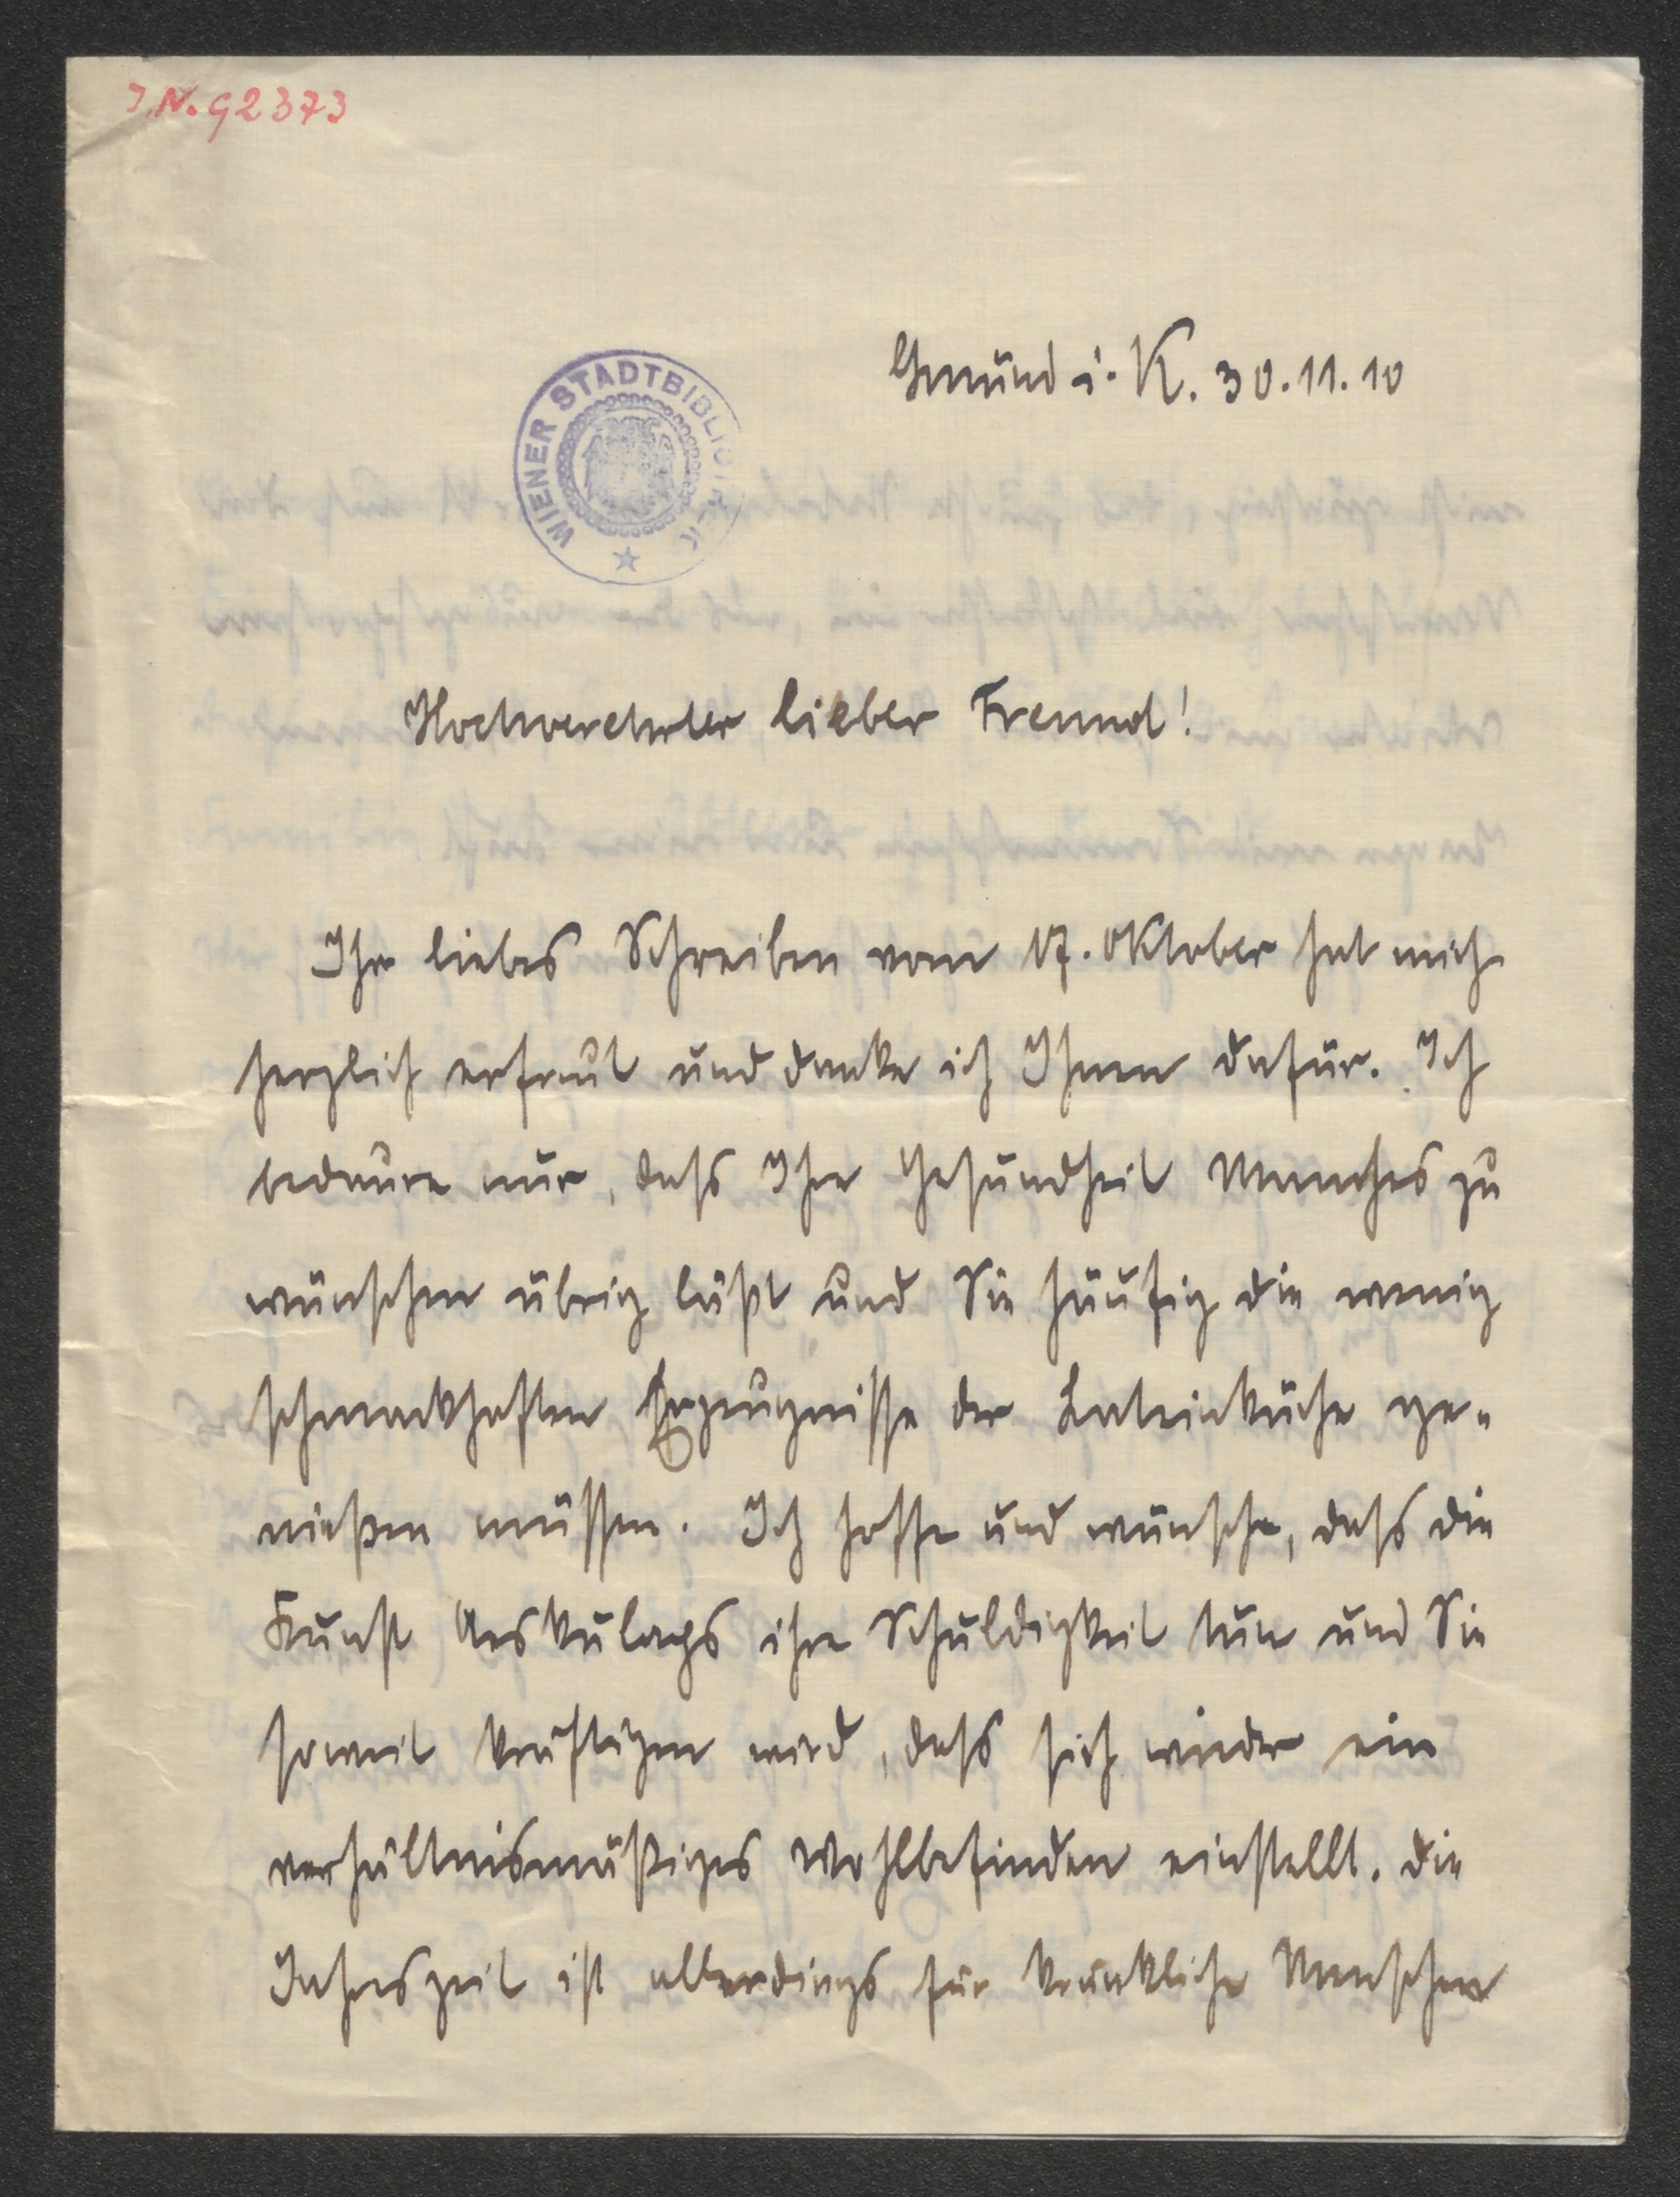 I.N. 92373
Gmünd i. K. 30.11.10
WIENER STADTBIBLIOTHEK
Hochverehrter lieber Freund!
Ihr liebes Schreiben vom 17. Oktober hat mich
herzlich erfreut und danke ich Ihnen dafür. Ich
bedaure nur, dass Ihre Gesundheit Manches zu
wünschen übrig läßt und Sie häufig die wenig
schmackhaften Erzeugnisse der Lateinküche ge-
nießen müssen. Ich hoffe und wünsche, dass die
Kunst Aeskulaps ihre Schuldigkeit tun und Sie
soweit kräftigen wird, dass sich wieder ein
verhältnismäßiges Wohlbefinden einstellt. Die
Jahreszeit ist allerdings für kränkliche Menschen